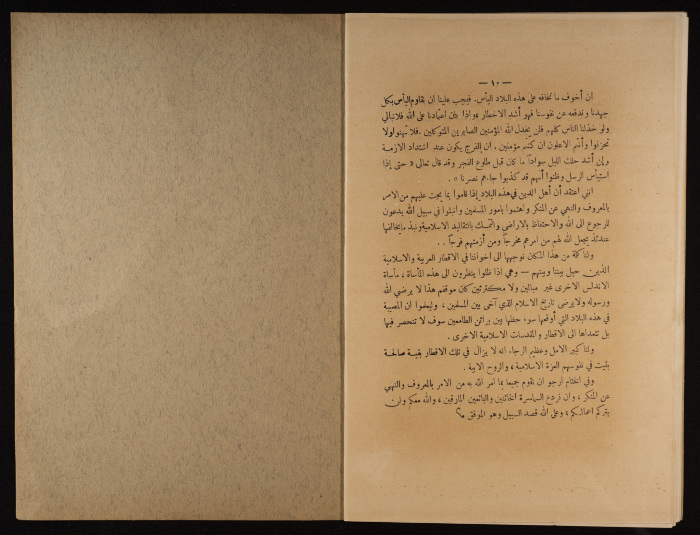 — ١٠ —
ان أخوف ما نخافه على هذه البلاد اليأس. فيجب علينا ان نقاوم اليأس بكل
جهدنا وندفعه عن نفوسنا فهو أشد الاخطار عليها واذا بقي اعتمادنا على الله فلا نبالي
ولو خذلنا الناس كلهم فلن يخذل الله المؤمنين الصابرين المتوكلين. فلا تهنوا ولا
تحزنوا وأنتم الاعلون ان كنتم مؤمنين . ان الفرج يكون عند اشتداد الازمة
وإن أشد حلك الليل سواداً ما كان قبل طلوع الفجر وقد قال تعالى « حتى إذا
استيأس الرسل وظنوا أنهم قد كذبوا جاءهم نصرنا » .
انني اعتقد أن أهل الدين في هذه البلاد إذا قاموا بما يجب عليهم من الامر
بالمعروف والنهي عن المنكر واهتموا بامور المسلمين وانبثوا في سبيل الله يدعون
للرجوع الى الله والاحتفاظ بالاراضي والتمسك بالتقاليد الاسلامية ونبذ ما يخالفها
عندئذ يجعل الله لهم من امرهم مخرجاً ومن أزمتهم فرجاً . .
ولنا كلمة من هذا المكان نوجهها الى اخواننا في الاقطار العربية والاسلامية
الذين حيل بيننا وبينهم — وهي اذا ظلوا ينظرون الى هذه المأساة ، مأساة
الاندلس الاخرى غير مبالين ولا مكترثين كان موقفهم هذا لا يرضي الله
ورسوله ولا يرضي تاريخ الاسلام الذي آخى بين المسلمين ، وليعلموا ان المصيبة
في هذه البلاد التي أوقعها سوء حظها بين براثن الطامعين سوف لا تنحصر فيها
بل تتعداها الى الاقطار والمقدسات الاسلامية الاخرى .
ولنا كبير الامل وعظيم الرجاء انه لا يزال في تلك الاقطار بقية صالحة
بقيت في نفوسهم العزة الاسلامية ، والروح الابية .
وفي الختام ارجو ان نقوم جميعا بما امر الله به من الامر بالمعروف والنهي
عن المنكر ، وان نردع السماسرة الخائنين والبائعين المارقين ، والله معكم ولن
يتركم اعمالكم ، وعلى الله قصد السبيل وهو الموفق